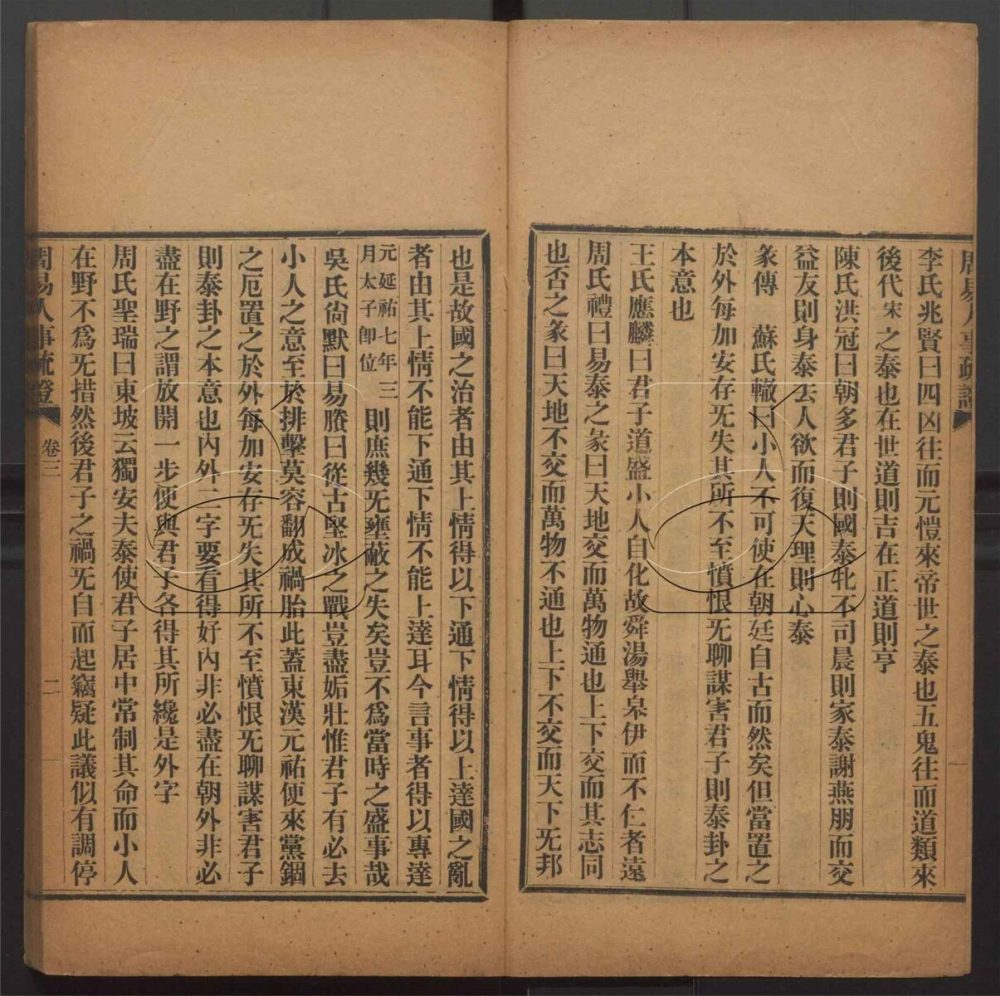 周易人事疏證
李氏兆賢曰四凶往而元愷來帝世之泰也五鬼往而道類來
後代宋之泰也在世道則吉在正道則亨
陳氏洪冠曰朝多君子則國泰牝不司晨則家泰謝燕朋而交
益友則身泰去人欲而復天理則心泰
彖傳 蘇氏轍曰小人不可使在朝廷自古而然矣但當置之
於外每加安存无失其所不至憤恨无聊謀害君子則泰卦之
本意也
王氏應麟曰君子道盛小人自化故舜湯舉皋伊而不仁者遠
周氏禮曰易泰之彖曰天地交而萬物通也上下交而其志同
也否之彖曰天地不交而萬物不通也上下不交而天下无邦
一
也是故國之治者由其上情得以下通下情得以上達國之亂
者由其上情不能下通下情不能上達耳今言事者得以專達
元延祐七年三
月太子卽位
則庶幾无壅蔽之失矣豈不爲當時之盛事哉
吳氏尙默曰易賸曰從古堅冰之戰豈盡姤壯惟君子有必去
小人之意至於排擊莫容翻成禍胎此蓋東漢元祐便來黨錮
之厄置之於外每加安存无失其所不至憤恨无聊謀害君子
則泰卦之本意也內外二字要看得好內非必盡在朝外非必
盡在野之謂放開一步便與君子各得其所纔是外字
周氏聖瑞曰東坡云獨安夫泰使君子居中常制其命而小人
在野不爲无措然後君子之禍无自而起竊疑此議似有調停
周易人事疏證
卷三
二